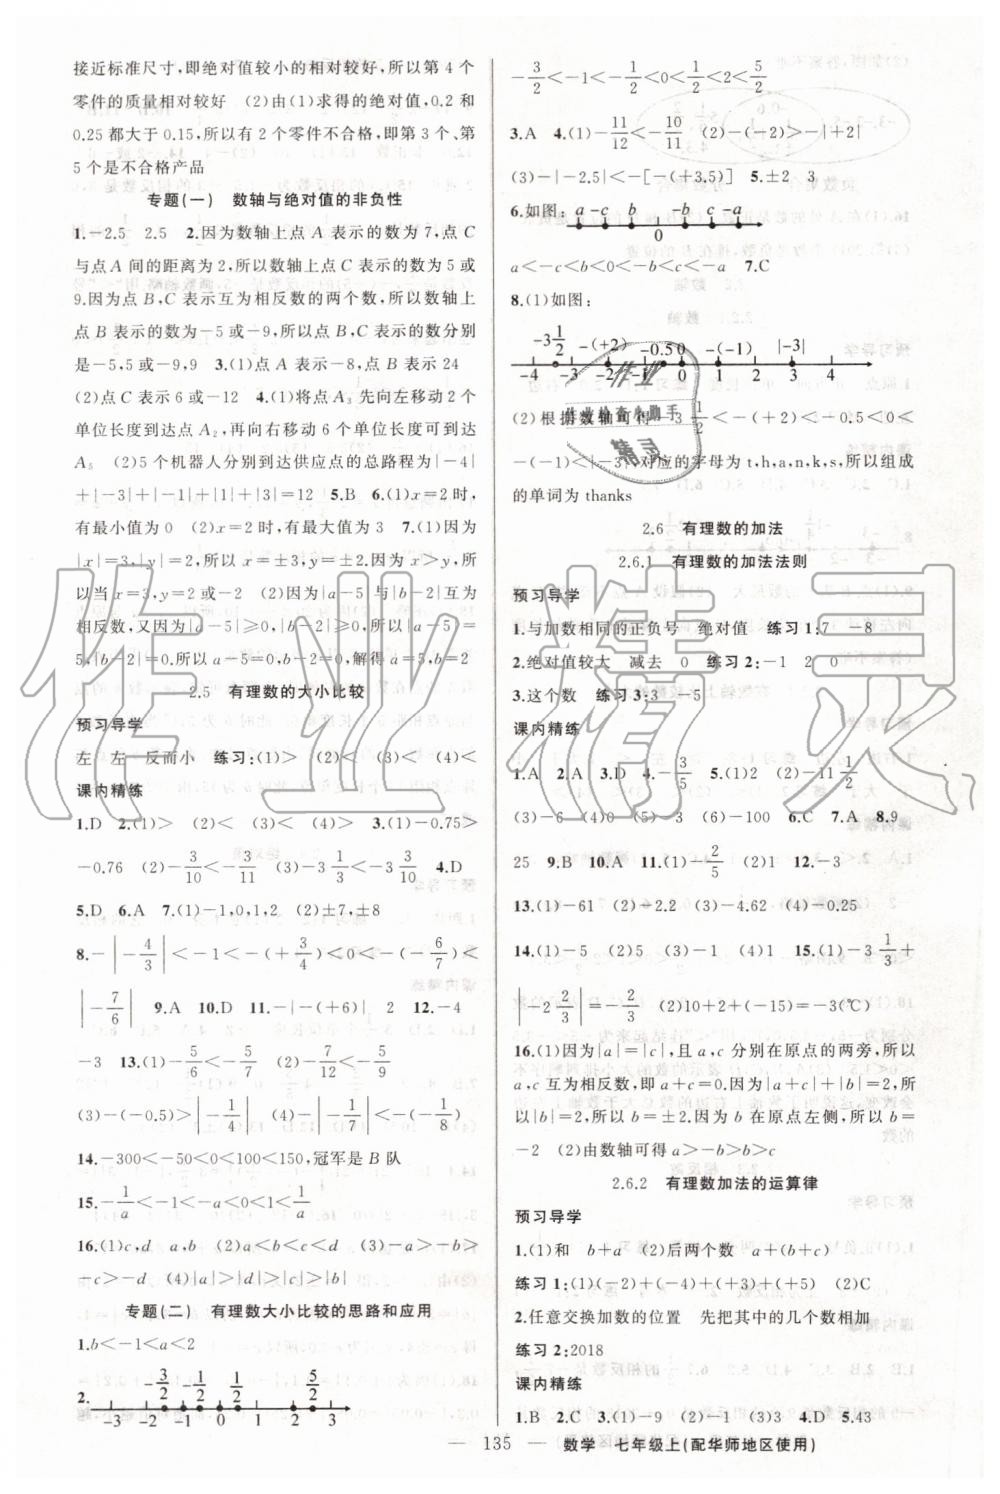 接近标准尺寸,即绝对值较小的相对较好,所以第 4 个
零件的质量相对较好 (2)由(1)求得的绝对值,0.2 和
0.25 都大于 0.15,所以有 2 个零件不合格,即第 3 个、第
5 个是不合格产品
专题(一) 数轴与绝对值的非负性
1.-2.5 2.5 2.因为数轴上点 A 表示的数为 7,点 C
与点 A 间的距离为 2,所以数轴上点 C 表示的数是 5 或
9.因为点 B,C 表示互为相反数的两个数,所以数轴上
点 B 表示的数为-5 或-9,所以点 B,C 表示的数分别
是-5,5 或-9,9 3.(1)点 A 表示-8,点 B 表示 24
(2)点 C 表示 6 或-12 4.(1)将点 A₃ 先向左移动 2 个
单位长度到达点 A₂,再向右移动 6 个单位长度可到达
A₅ (2)5 个机器人分别到达供应点的总路程为|-4|
+|-3|+|-1|+|1|+|3|=12 5.B 6.(1)x=2 时,
有最小值为 0 (2)x=2 时,有最大值为 5 7.(1)因为
|x|=3,|y|=2,所以 x=±3,y=±2.因为 x<y,所
以当 x=-3 时,y=±2 (2)因为|a-5|与|b-2|互为
相反数,又因为|a-5|≥0,|b-2|≥0,所以|a-5|=
5,|b-2|=0.所以 a-5=0,b-2=0,解得 a=5,b=2
2.5 有理数的大小比较
预习导学
左 左 反而小 练习:(1)> (2)< (3)< (4)<
课内精练
1.D 2.(1)> (2)< (3)< (4)> 3.(1)-0.75>
-0.76 (2)-3/10<-3/11 (3)-3 1/3<-3 3/10 4.D
5.D 6.A 7.(1)-1,0,1,2 (2)±7,±8
8.-|-4/3|<-1<-(+3/4)<0<-(-6/7)<
|-7/6| 9.A 10.D 11.-|-(+6)| 2 12.-4
-3 13.(1)-5/6<-5/7 (2)-7/12>-7/9
(3)-(-0.5)>|-1/4| (4)-|-1/7|<-(-1/8)
14.-300<-50<0<100<150,冠军是 B 队
15.-1/a<-1<-a<0<1<1/a
16.(1)c,d a,b (2)a<b<c<d (3)-a>-b>
-c>-d (4)|a|>|d|>|c|>|b|
专题(二) 有理数大小比较的思路和应用
1.b<-1<a<2
2.
-3/2 -1/2 1/2 5/2
-3 -2 -1 0 1 2 3
-3/2<-1<-1/2<0<1/2<5/2
3.A 4.(1)-11/12<-10/11 (2)-(-2)>-|+2|
(3)-|-2.5|<-[-(+3.5)] 5.±2 3
6.如图: a -c b -b c -a
0
a<-c<b<0<-b<c<-a 7.C
8.(1)如图:
-3 1/2 -(+2) -0.5 0 -(-1) |-3|
-4 -3 -2 -1 0 1 2 3 4
(2)根据数轴可得-3 1/2<-(+2)<-0.5<0<
-(-1)<|-3|,对应的字母为 t,h,a,n,k,s,所以组成
的单词为 thanks
2.6 有理数的加法
2.6.1 有理数的加法法则
预习导学
1.与加数相同的正负号 绝对值 练习 1:7 -8
2.绝对值较大 减去 0 练习 2:-1 2 0
3.这个数 练习 3:3 -5
课内精练
1.A 2.A 3.D 4.-3/5 5.(1)2 (2)-11 1/2
(3)-6 (4)-6 (5)0 (6)-100 6.C 7.A 8.9
25 9.B 10.A 11.(1)-5 (2)1 12.-3
13.(1)-61 (2)-2.2 (3)-4.62 (4)-0.25
14.(1)-5 (2)5 (3)-1 (4)1 15.(1)-3 1/3+
|-2 2/3|=-2/3 (2)10+2+(-15)=-3(℃)
16.(1)因为|a|=|c|,且 a,c 分别在原点的两旁,所以
a,c 互为相反数,即 a+c=0.因为|a+c|+|b|=2,所
以|b|=2,所以 b=±2.因为 b 在原点左侧,所以 b=
-2 (2)由数轴可得 a>-b>b>c
2.6.2 有理数加法的运算律
预习导学
1.(1)和 b+a (2)后两个数 a+(b+c)
练习 1:(1)(-2)+(-4)+(+3)+(+5) (2)C
2.任意交换加数的位置 先把其中的几个数相加
练习 2:2018
课内精练
1.B 2.C 3.(1)-9 (2)-1 (3)3 4.D 5.43
— 135 — 数学 七年级上(配华师地区使用)
作业精灵